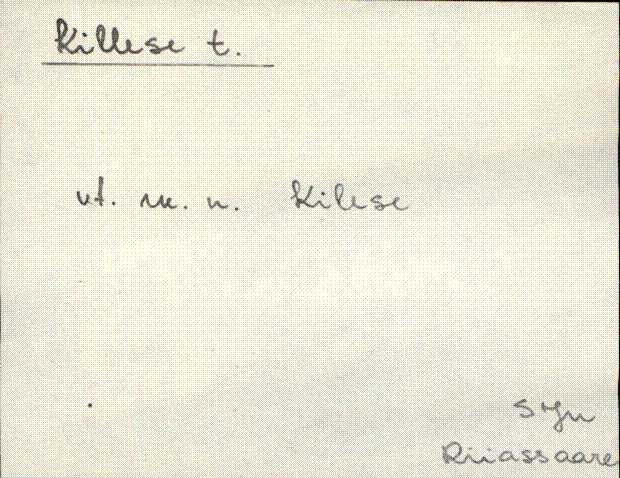 Killese t.
vt. m. n. Kilese
SJn
Riiassaare